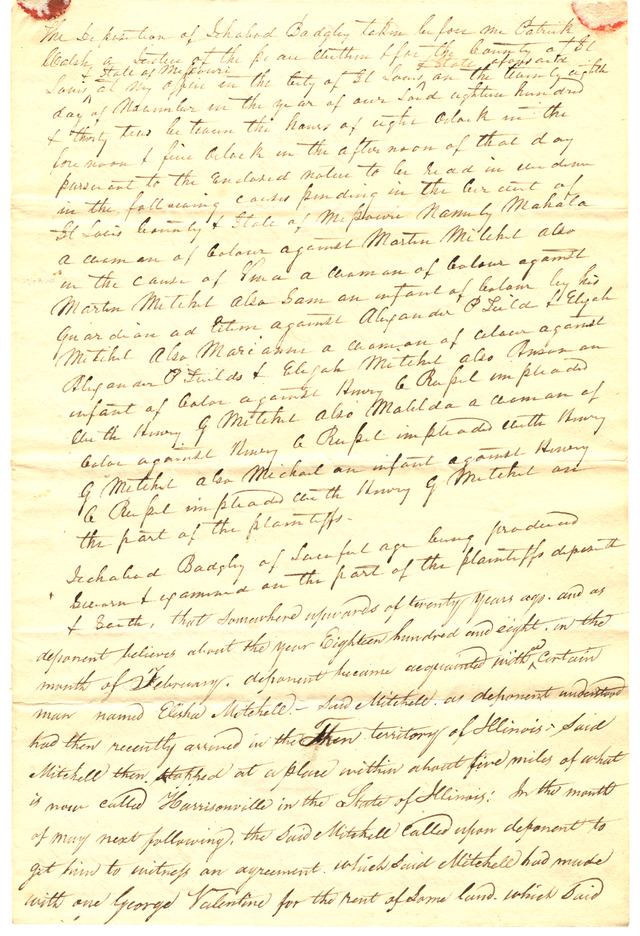 The Deposition of Ichabod Badgley taken before me Patrick
Walsh, a Justice of the peace within & for the County of St
& State of Missouri & State aforesaid
Louis, at my office in the City of St Louis, on the twenty eighth
day of November in the year of our Lord eighteen hundred
& thirty two between the hours of eight Oclock in the
forenoon & five Oclock in the afternoon of that day
pursuant to the enclosed notice to be read in evidence
in the following causes pending in the Circuit of
St Louis County & State of Missouri Namely Mahala
a woman of Colour against Martin Mitchel also
in the cause of a woman of Colour against
Martin Mitchel also Sam an infant of Colour by his
Guardian ad litem against Alexander P Guild & Elijah
Mitchel Also Marianne a woman of colour against
Alexander P Guilds & Elijah Mitchel also Anson an
infant of Color against Henry C Russel impleaded
with Henry G Mitchel also Matilda a woman of
Color against Henry C Russel impleaded with Henry
G Mitchel also Michael an infant against Henry
C Russel impleaded with Henry G Mitchel on
the part of the plaintiffs.
Ichabod Badgley of Lawful age being produced
Sworn & examined on the part of the plaintiffs deposeth
& saith, that somewhere upwards of twenty years ago. and as
deponent believes about the year Eighteen hundred and eight. in the
month of February. deponent became acquainted with a certain
man named Elisha Mitchell. – Said Mitchell. as deponent understood
had then recently arrived in the Then territory of Illinois – Said
Mitchell then stopped at a place within about five miles of what
is now called Harrisonville in the State of Illinois: In the month
of may next following, the Said Mitchell Called upon deponent to
get him to witness an agreement. which Said Mitchell had made
with one George Valentine for the rent of Some land. which Said